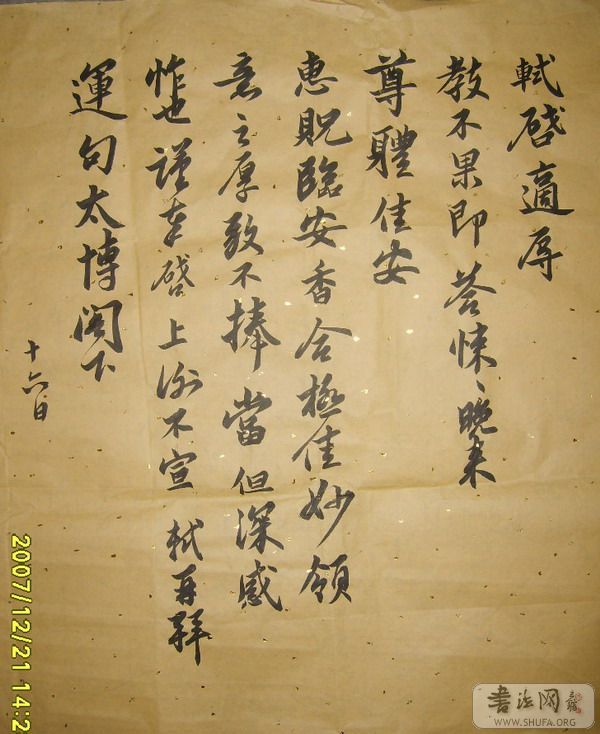 軾啓適辱
教不果即荅悚〻晚来
尊體佳安
惠貺臨安香合極佳妙領
意之厚敢不捧當但深感
怍也謹奉啓上謝不宣 軾再拜
運句太博閣下
十六日
2007/12/21 14:2
書法网
WWW.SHUFA.ORG